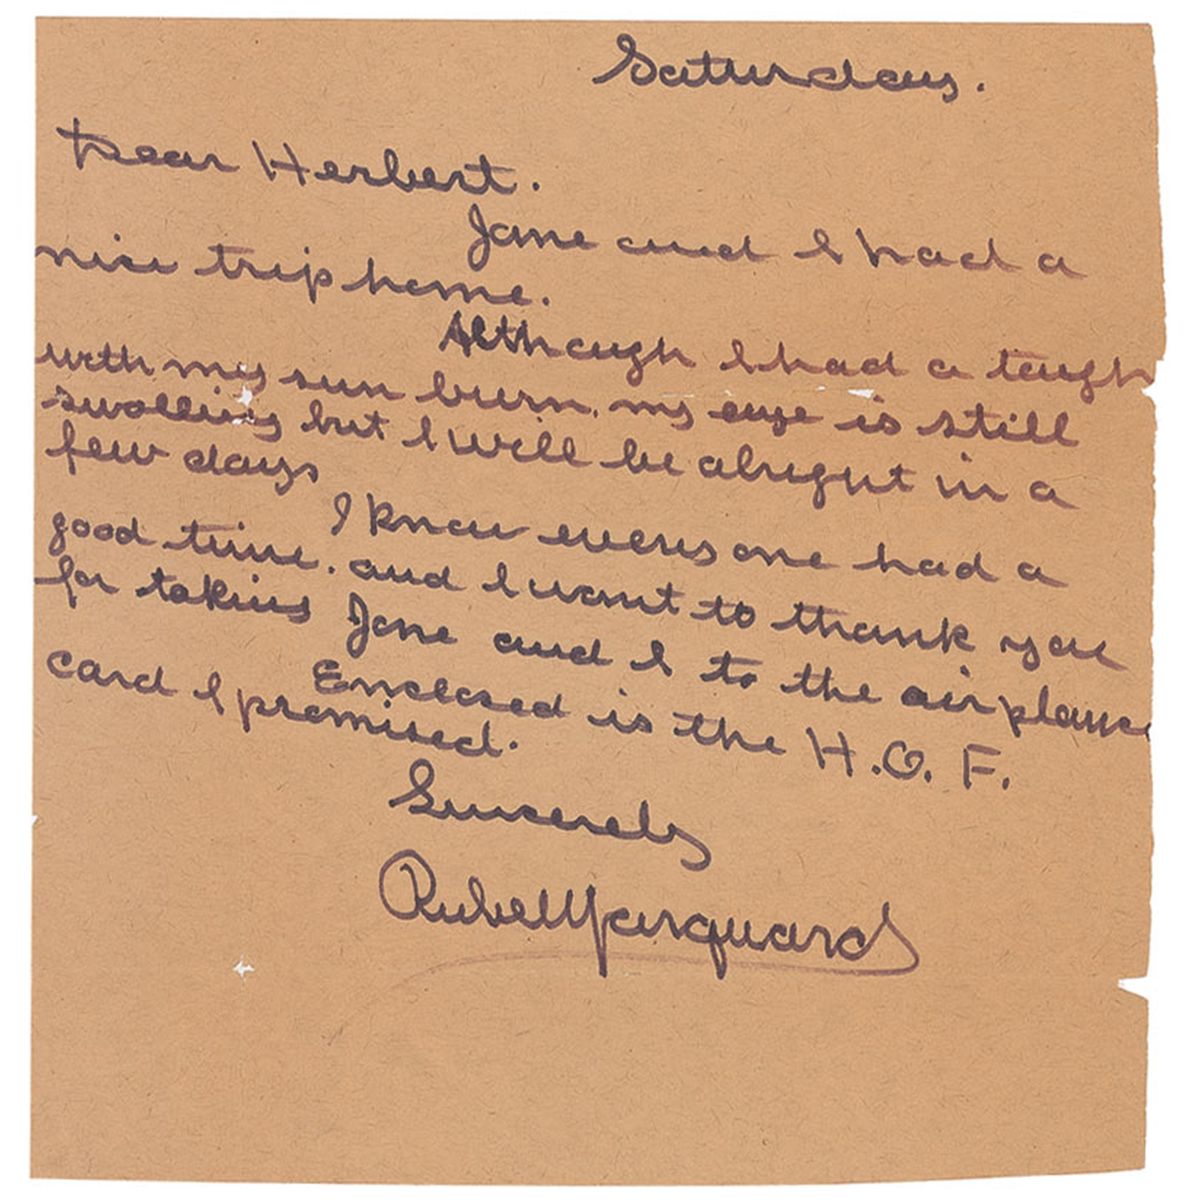 Saturday.
Dear Herbert.
Jane and I had a
nice trip home.
Although I had a tough
with my sun burn. my eye is still
swolling but I will be alright in a
few days
I know everyone had a
good time. and I want to thank you
for taking Jane and I to the airplane
Enclosed is the H.O.F.
card I promised.
Sincerely
Rube Marquard